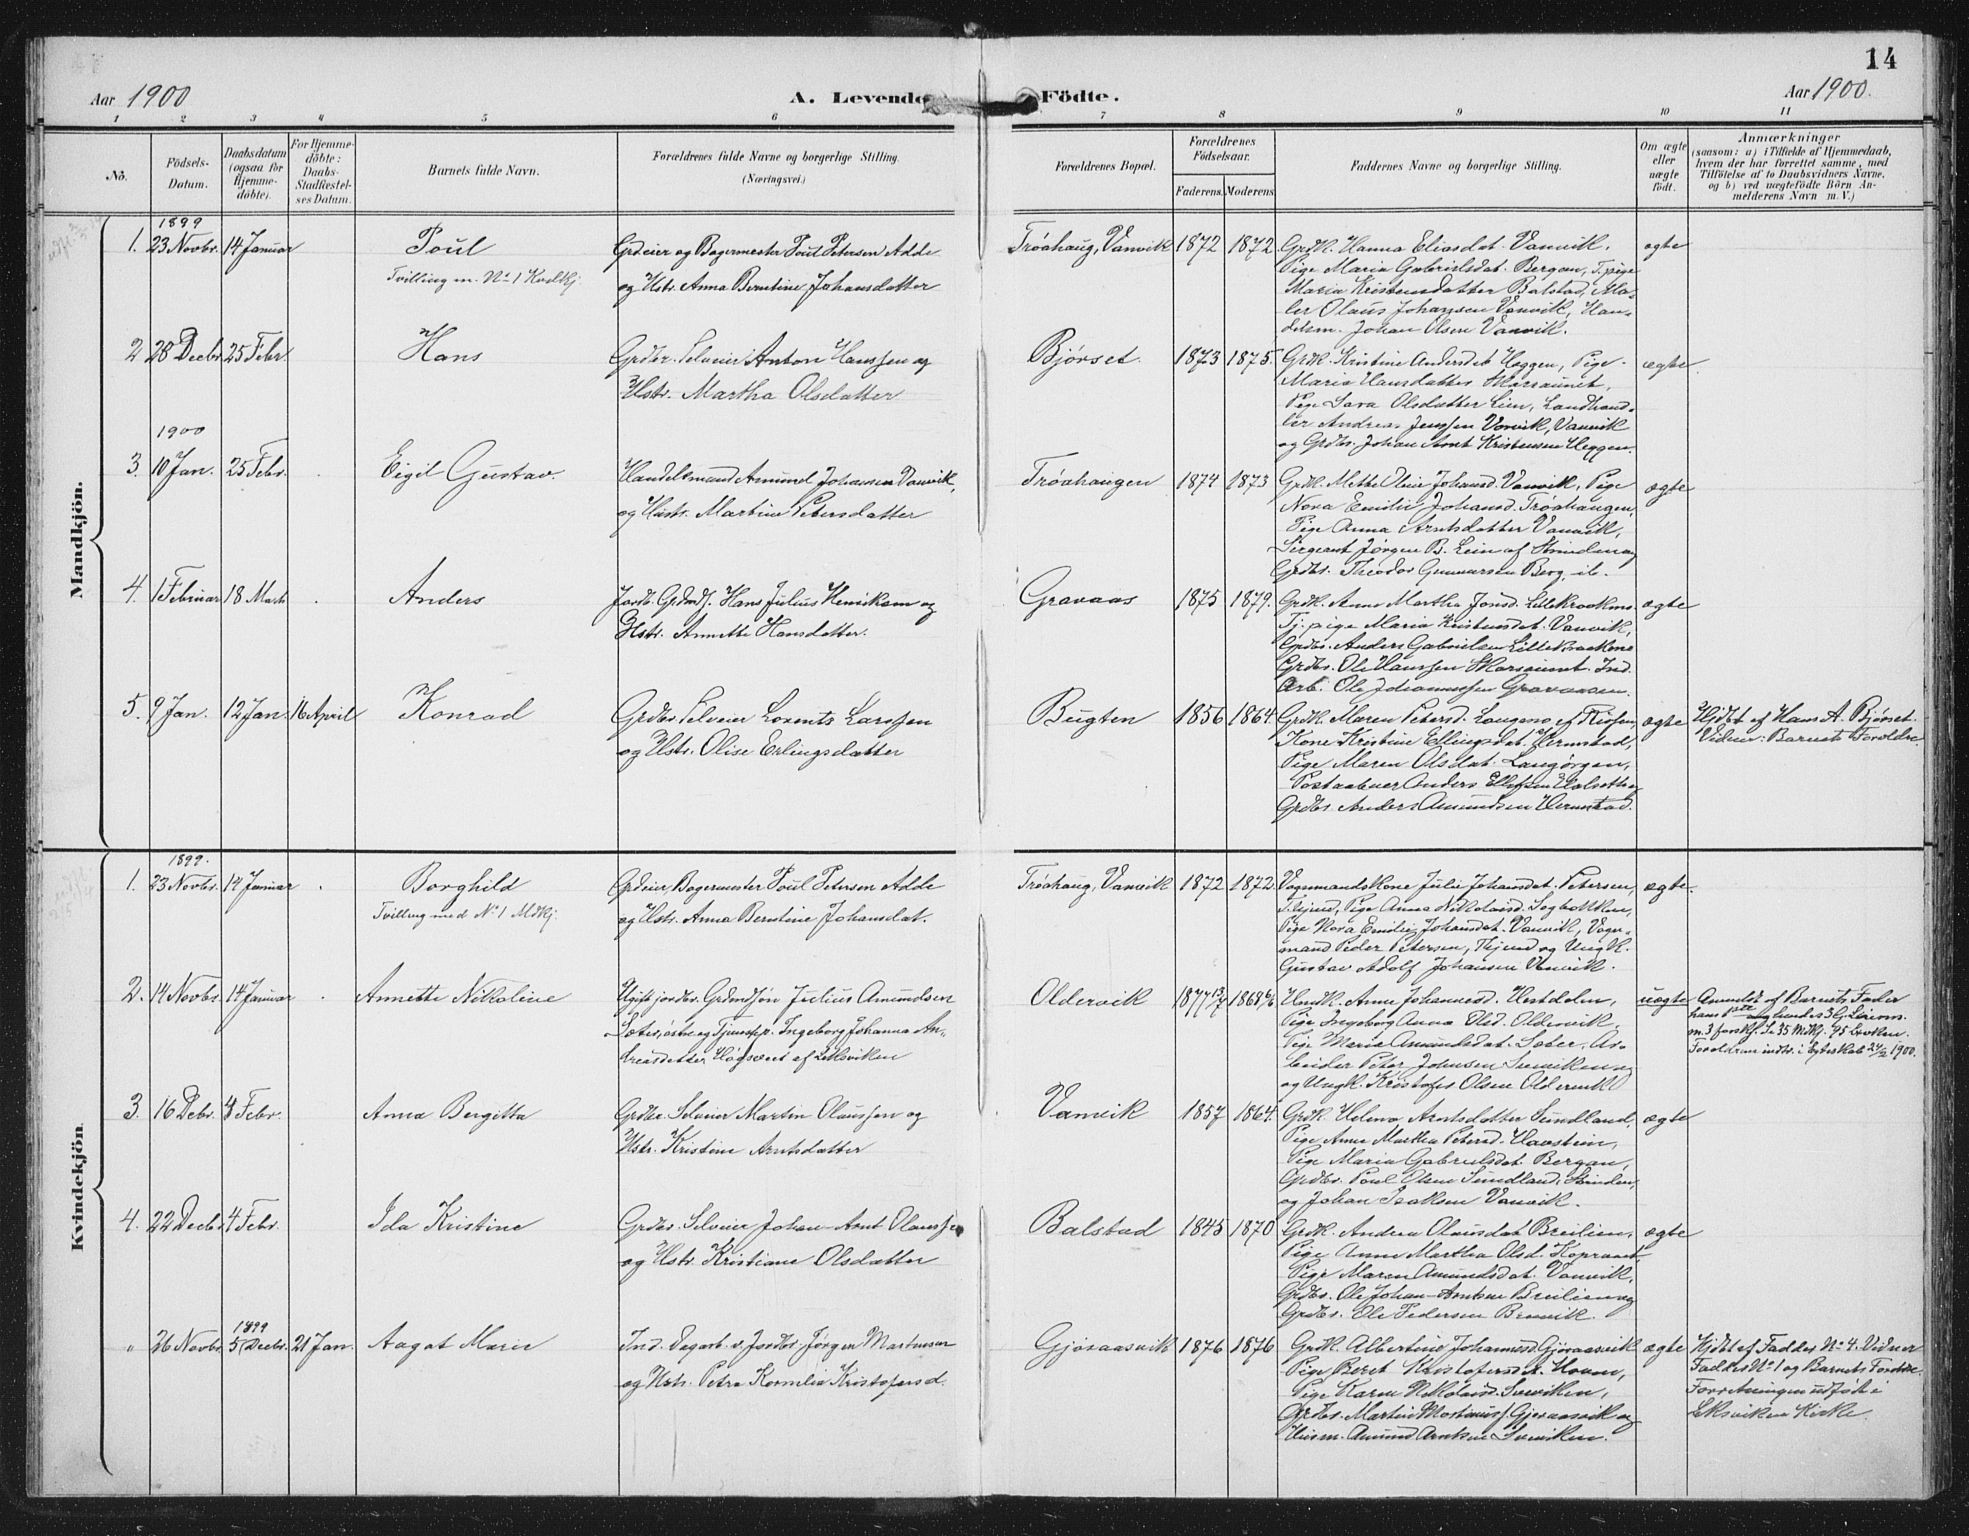 14
Aar 1900
A. Levende Födte.
Aar 1900.
1 2 3 4 5 6 7 8 9 10 11
No.
Födsels-
Datum.
Daabsdatum
(ogsaa for
Hjemme-
döbte).
For Hjemme-
döbte:
Daabs-
Stadfæstel-
ses Datum.
Barnets fulde Navn.
Forældrenes fulde Navne og borgerlige Stilling.
(Næringsvei.)
Forældrenes Bopæl.
Forældrenes
Födselsaar.
Faderens. Moderens.
Faddernes Navne og borgerlige Stilling.
Om ægte
eller
uægte
födt.
Anmærkninger
(saasom: a) i Tilfælde af Hjemmedaab,
hvem der har forrettet samme, med
Tilföielse af to Daabsvidners Navne,
og b) ved uægtefödte Börn An-
melderens Navn m. V.)
Mandkjön.
1899
1. 23 Novbr. 14 Januar
Poul
Tvilling m. No 1 Kvdkj.
Grdeier og Bagermester Poul Petersen Adde
og Hstr. Anna Berntine Johansdatter
Trøahaug, Vanvik 1872 1872
Grdk. Hanna Eliasdat. Vanvik,
Pige Maria Gabrielsdat. Bergan, Tj.pige
Maria Kristensdatter Balstad, Ma-
ler Olaus Johansen Vanvik, Han-
delsm. Johan Olsen Vanvik.
ægte
2 28 Decbr 25 Febr.
Hans
Grdbr. Selveier Anton Hanssen og
Hstr. Martha Olsdatter
Bjørset. 1873 1875.
Grdk. Kristine Andersdat. Heggen, Pige
Maria Hansdatter
Pige Sara Olsdatter Lien, Landhand-
ler Andreas Jenssen Vanvik, Vanvik
og Grdbr. Johan Arnt Kristensen Heggen.
ægte
1900
3. 10 Jan. 25 Febr.
Eigil Gustav.
Handelsmand Amund Johansen Vanvik,
og Hustr. Martine Petersdatter
Trøahaugen 1874 1873
Grdk. Mette Oline Johansd. Vanvik, Pige
Nora Emilie Johansd. Trøahaugen,
Pige Anna Arntsdatter Vanvik,
Sergeant Jørgen B. Lein af Strinden og
Grdbr. Theodor Gunnarsen Berg, ib.
ægte
4. 1 Februar 18 Marts
Anders
Jordb. Grdmds. Hans Julius Henriksen og
Hstr. Annette Hansdatter.
Gravaas 1875 1879.
Grdk. Anne Martha Jonsd. Lillekraakmo
Tj.pige Maria Kristensdat. Vanvik,
Grdbr. Anders Gabrielsen Lillekraakmo
Grdbr. Ole Hanssen
Arb. Ole Johannessen Gravaasen.
ægte
5. 9 Jan. 12 Jan. 16 April
Konrad
Grdbr. Selveier Lorents Larssen
og Hstr. Olise Erlingsdatter
Bugten 1856 1864.
Grdk. Maren Petersd. Langeng af Rissen,
Kone Kristine Ellingsdat. Hermstad,
Pige Maren Olsdat. Langørgen,
Postaabner Anders Ellefsen
Grdbr. Anders Amundsen Hermstad.
ægte
Hjdbt af Hans A. Bjørset.
Vidner: Barnets Forældre.
Kvindekjön.
1899.
1. 23 Novbr. 14 Januar
Borghild
Tvilling med No 1 Mdkj.
Grdeier, Bagermester Poul Petersen Adde
og Hstr. Anna Berntine Johansdat.
Trøahaug, Vanvik 1872 1872.
Vognmandskone Julie Johansdat. Petersen,
Pige Anna Nikolaisd.
Pige Nora Emilie Johansdat. Vanvik, Vogn-
mand Peder Petersen, Thjem og Ungk.
Gustav Adolf Johansen Vanvik.
ægte.
2. 14 Novbr. 14 Januar
Annette Nikoline
Ugift jordbr. Grdmdsøn Julius Amundsen
Sæter, østre og Tjenestep. Ingeborg Johanna An-
dreasdatter, af Leksviken
Oldervik 1877 13/7 1868 6/6
Anne Johannesd.
Pige Ingeborg Anna Olsd. Oldervik
Pige Maria Amundsdat. Sæter, Ar-
beider Peter Johnsen
og Ungk. Kristofer Olsen Oldervik
uægte
Anmeldt af Barnets Fader
hans 1ste og hendes 3. Leierm.
Forældrene indtr. i Egteskab 24/2 1900.
3. 16 Decbr. 4 Febr.
Anna Bergitta
Grdbr. Selveier Martin Olaussen og
Hstr. Kristine Arntsdatter
Vanvik 1857 1864.
Grdk. Helena Arntsdatter Sundland,
Pige Anne Martha Petersd. Havstein,
Pige Maria Gabrielsdat. Bergan,
Grdbr. Poul Olsen Sundland, Strinden,
og Johan Isaksen Vanvik.
ægte
4. 22 Decbr 4 Febr.
Ida Kristine
Grdbr. Selveier Johan Arnt Olaussen
og Hstr. Kristiane Olsdatter
Balstad 1845 1870
Grdk. Andrea Olausdat. Breilien,
Pige Anne Martha Olsd.
Pige Maren Amundsdat. Vanvik,
Grdbr. Ole Johan Arntsen Breilien og
Grdbr. Ole Pedersen
ægte
1899
" 26 Novbr. 5 Decbr. 21 Jan.
Aagot Marie
Ind. Dagarb. v. Jordbr. Jørgen Martinsen
og Hstr. Petra Kornelia Kristofersd.
Gjøraasvik 1876 1876
Grdk. Albertine Johannesd. Gjøraasvik
Pige Beret Kristofersdat. Hoven,
Pige Karen Nikolaisd.
Grdbr. Martin Gjøraasvik og
Husm. Amund Arntsen
ægte
Hjdbt af Fadder No 4. Vidner
Fadder No 1 og Barnets Forældre.
Forretningen udført i
Leksviken Kirke.